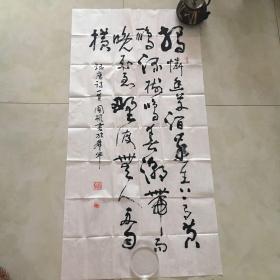 獨憐幽草澗邊生上有黄
鸝深樹鳴春潮帶雨
晚来急野渡無人舟自
橫